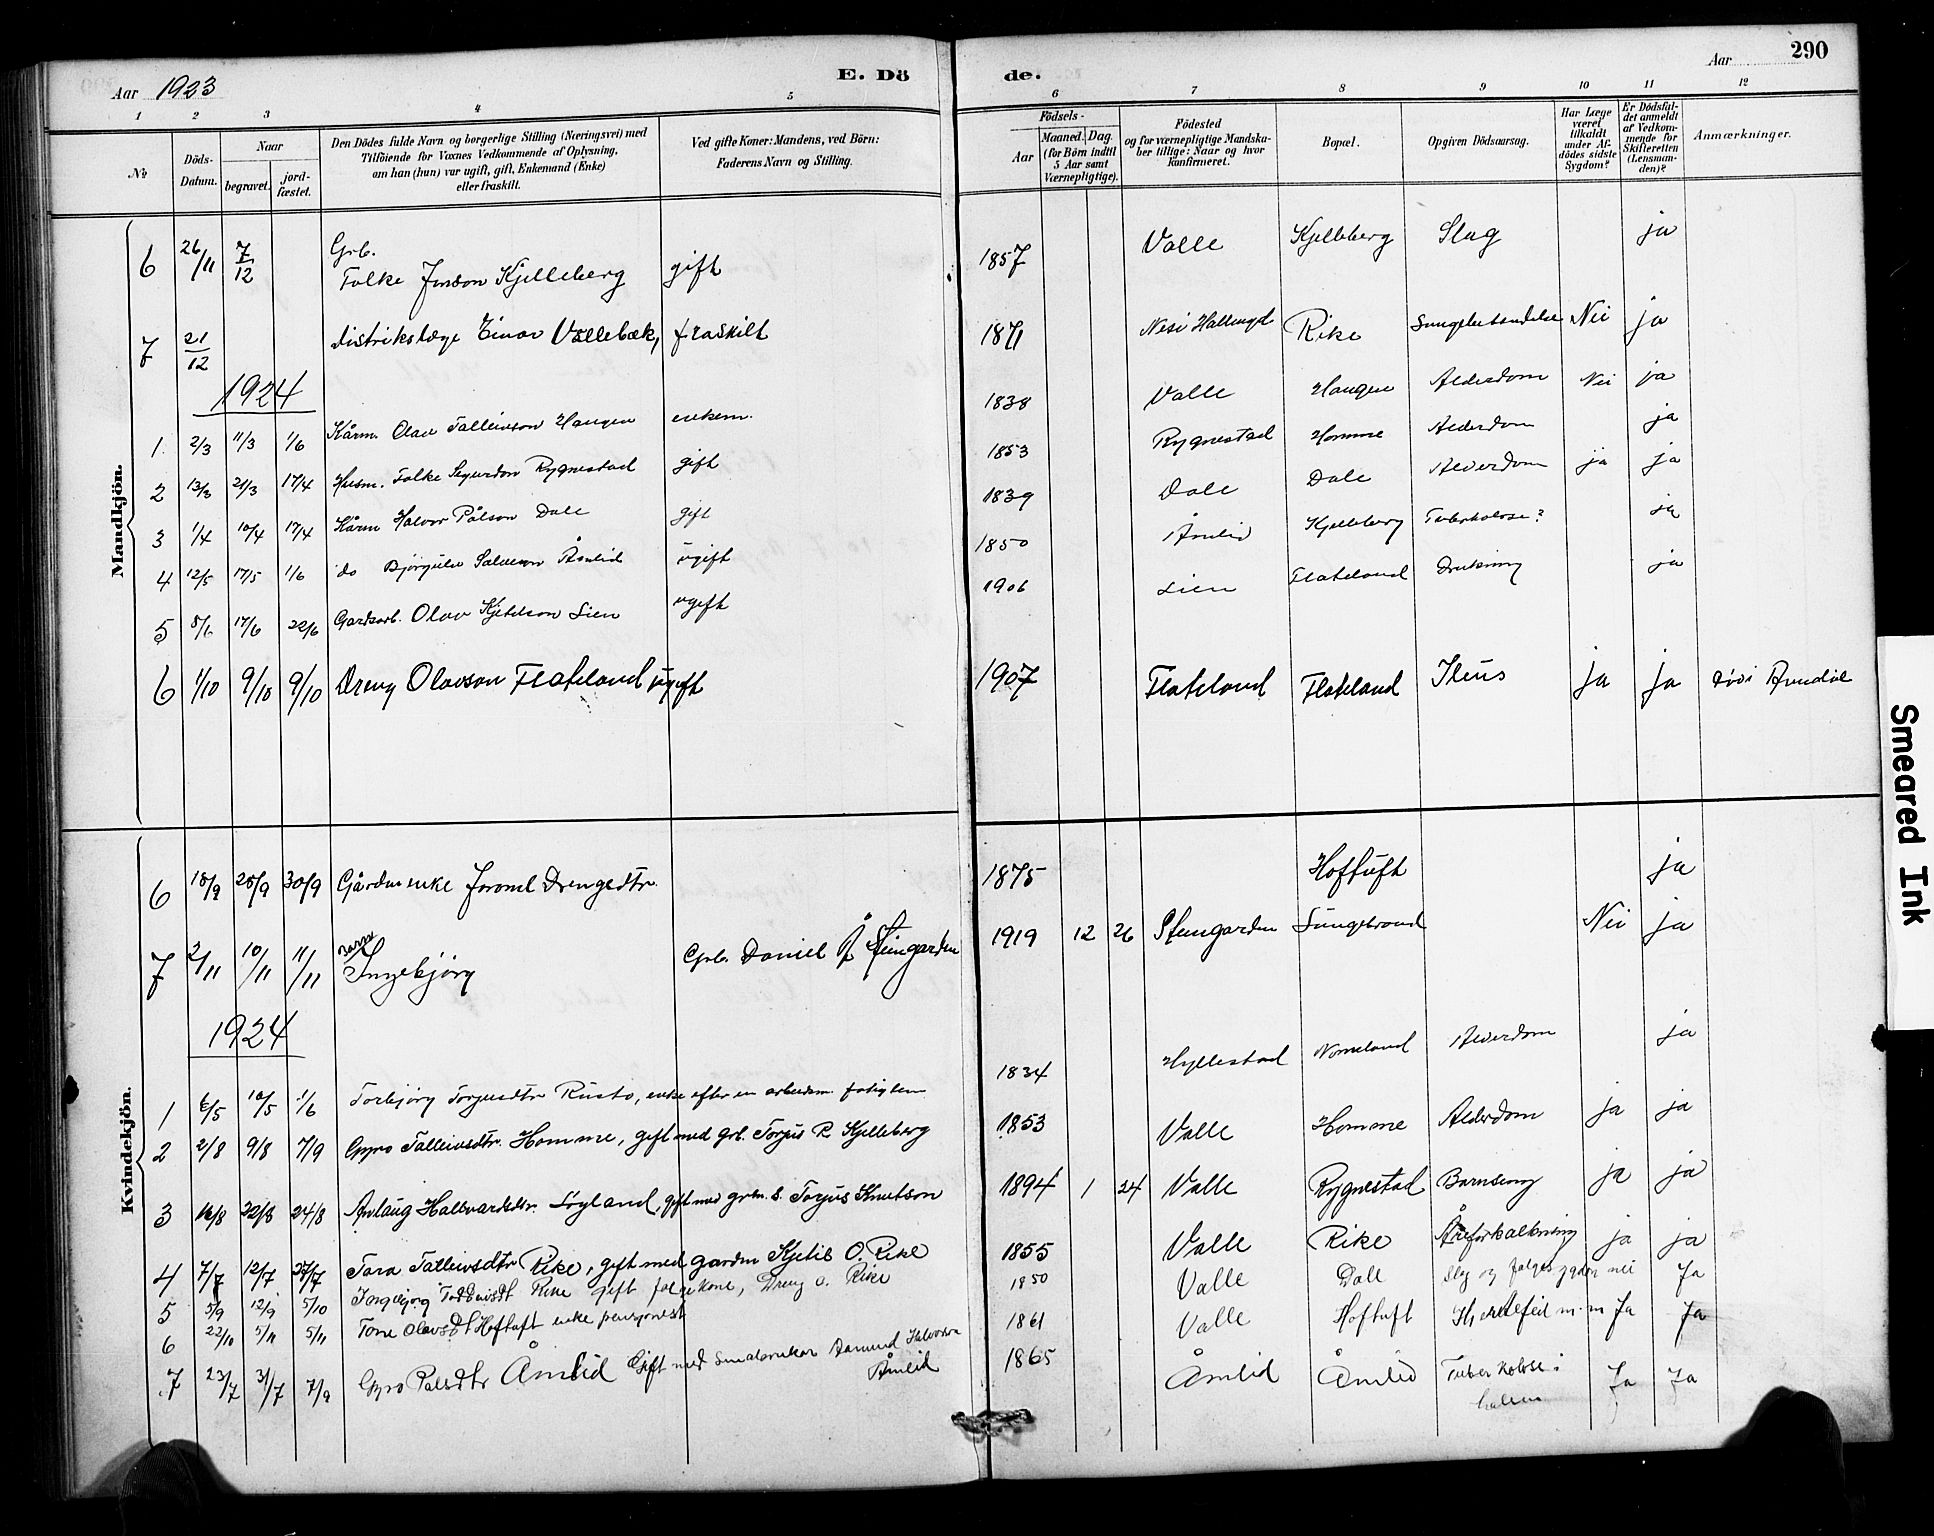 290
Aar 1923
E. Dö
de.
Aar
1 2 3 4 5 6 7 8 9 10 11 12
No
Döds-Datum.
Naar
begravet.
jord-fæstet.
Den Dödes fulde Navn og borgerlige Stilling (Næringsvei) med
Tilföiende for Voxnes Vedkommende af Oplysning,
om han (hun) var ugift, gift, Enkemand (Enke)
eller fraskilt.
Ved gifte Koner: Mandens, ved Börn:
Faderens Navn og Stilling.
Födsels-
Aar
Maaned. Dag.
(for Börn indtil
5 Aar samt
Værnepligtige).
Födested
og for værnepligtige Mandska-
ber tillige: Naar og hvor
konfirmeret.
Bopæl.
Opgiven Dödsaarsag.
Har Læge
været
tilkaldt
under Af-
dödes sidste
Sygdom?
Er Dödsfal-
det anmeldt
af Vedkom-
mende for
Skifteretten
(Lensman-
den)?
Anmærkninger.
Mandkjön.
6 26/11 7/12 Grb. Folke Jonson Kjelleberg gift 1857 Valle Kjelleberg Slag ja
7 21/12 distriktslæge Einar Vallebæk, fraskilt 1871 Nesi Rike Nei ja
1924
1 2/3 11/3 1/6 Kårm. Olav Talleivson Haugen enkem. 1838 Valle Haugen Alderdom Nei ja
2 13/3 21/3 17/4 Husm. Folke Sigurdson Rygnestad gift 1853 Rygnestad Homme Alderdom ja
3 1/4 10/4 17/4 Kårm Halvor Pålson Dale gift 1839 Dale Dale Alderdom ja ja
4 12/5 17/5 1/6 do Bjørgulv Salveson Åmlid ugift 1850 Åmlid Kjelleberg Tuberkolose? ja
5 8/6 17/6 22/6 Gardsarb. Olav Kjetelson Lien ugift 1906 Lien Flateland Drukning ja
6 1/10 9/10 9/10 Dreng Olavson Flateland ugift 1907 Flateland Flateland Ileus ja ja død i Arendal
Kvindekjön.
6 18/9 25/9 30/9 Gårdm enke Joronl Drengedtr. 1875 Hoftuft ja
7 2/11 10/11 11/11 barn Ingebjørg Grb. Daniel Steingarden 1919 12 26 Steingarden Lungebrand Nei ja
1924
1 6/5 10/5 1/6 Torbjørg Torjusdtr Rusto, enke efter en arbeidsm. fatiglem 1834 Hyllestad Nomeland Alderdom ja
2 2/8 9/8 7/9 Gyro Talleivsdtr. Homme, gift med grb. Torjus R Kjelleberg 1853 Valle Homme Alderdom ja ja
3 16/8 22/8 24/8 Aslaug Hallvardsdtr. Løyland, gift med grbr. s. Torjus Knutson 1894 1 24 Valle Rygnestad Barnseng ja ja
4 7/7 12/7 27/7 Tara Talleivsdtr Rike, gift med gardm Kjetil O. Rike 1855 Valle Rike Åreforkalkning ja ja
5 5/9 12/9 5/10 Ingebjørg Rike gift Dreng O. Rike 1850 Valle Dale Slag og nei Ja
6 22/10 5/11 5/11 Tone Olavsdt Hoftuft enke pensjonist 1861 Valle Hoftuft Hjertefeil m. m Ja Ja
7 23/7 31/7 7/9 Gyro Palsdtr Åmlid Gift med Halvorson Åmlid 1865 Åmlid Åmlid Tuberkolose i halsen Ja Ja
Smeared Ink